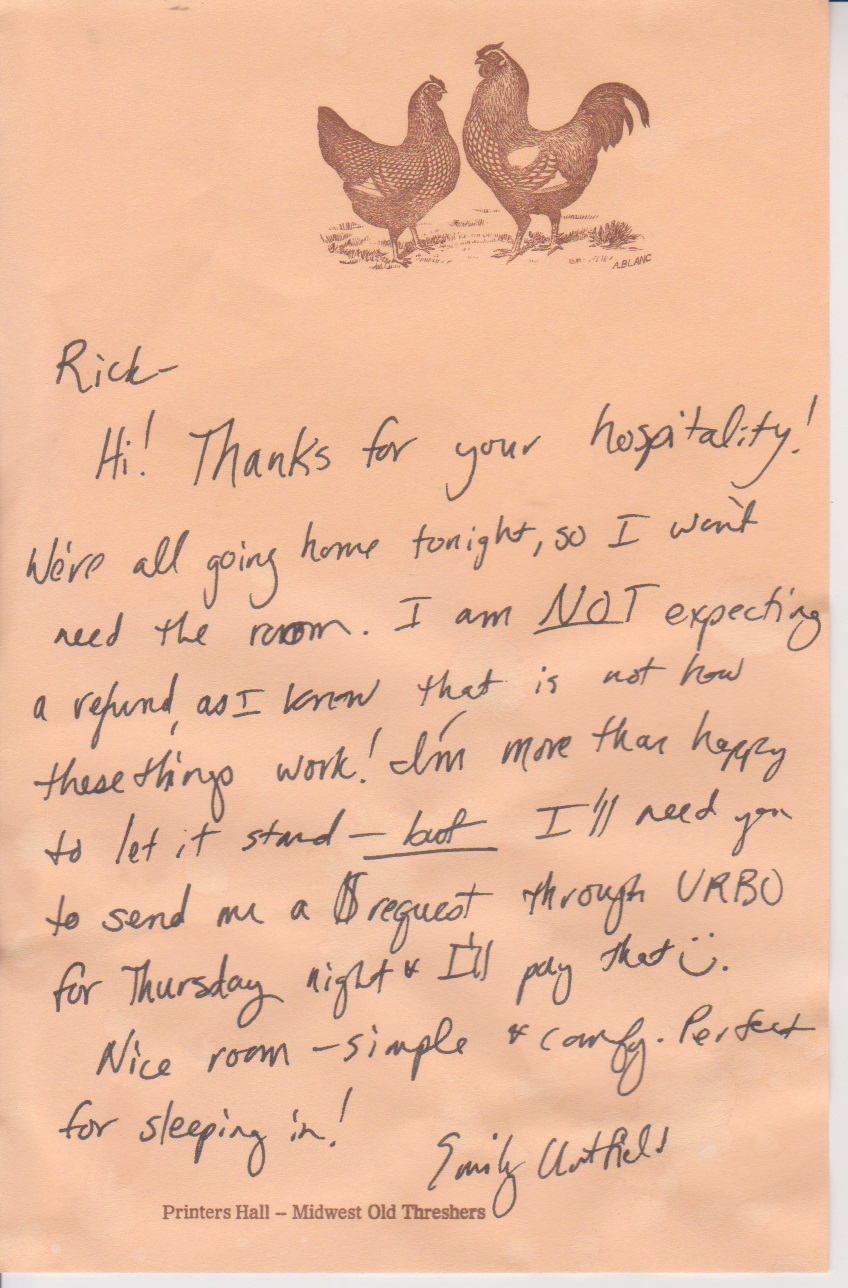 A.BLANC
Rick-
Hi! Thanks for your hospitality!
We're all going home tonight, so I won't
need the room. I am NOT expecting
a refund, as I know that is not how
these things work! I'm more than happy
to let it stand - but I'll need you
to send me a $ request through URBO
for Thursday night & I'll pay that :).
Nice room - simple & comfy. Perfect
for sleeping in!
Emily
Printers Hall – Midwest Old Threshers